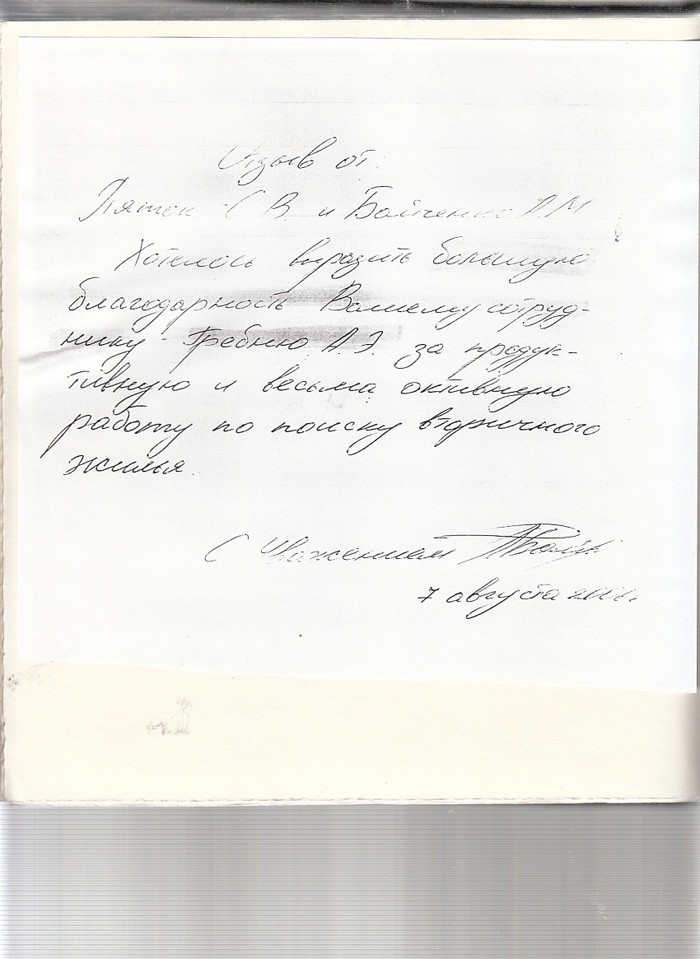 Отзыв от
Пяток С В и Бойченко А.М
Хотелось выразить большую
благодарность Вашему сотруд-
нику - Гребню А.Э. за продук-
тивную и весьма активную
работу по поиску вторичного
жилья.
С Уважением
7 августа